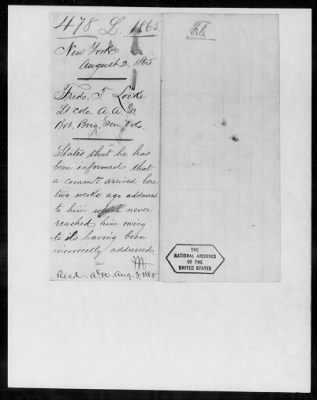 478 L. 1865
New York
August 2. 1865
Fredc. T. Locke
Lt Col. A.A.G.
Bvt. Brig. Gen. Vols.
States that he has
been informed that
a commn. arrived here
two weeks ago addressed
to him never
reached him owing
to its having been
incorrectly addressed
Recd. Aug. 3 1865
THE
NATIONAL ARCHIVES
OF THE
UNITED STATES